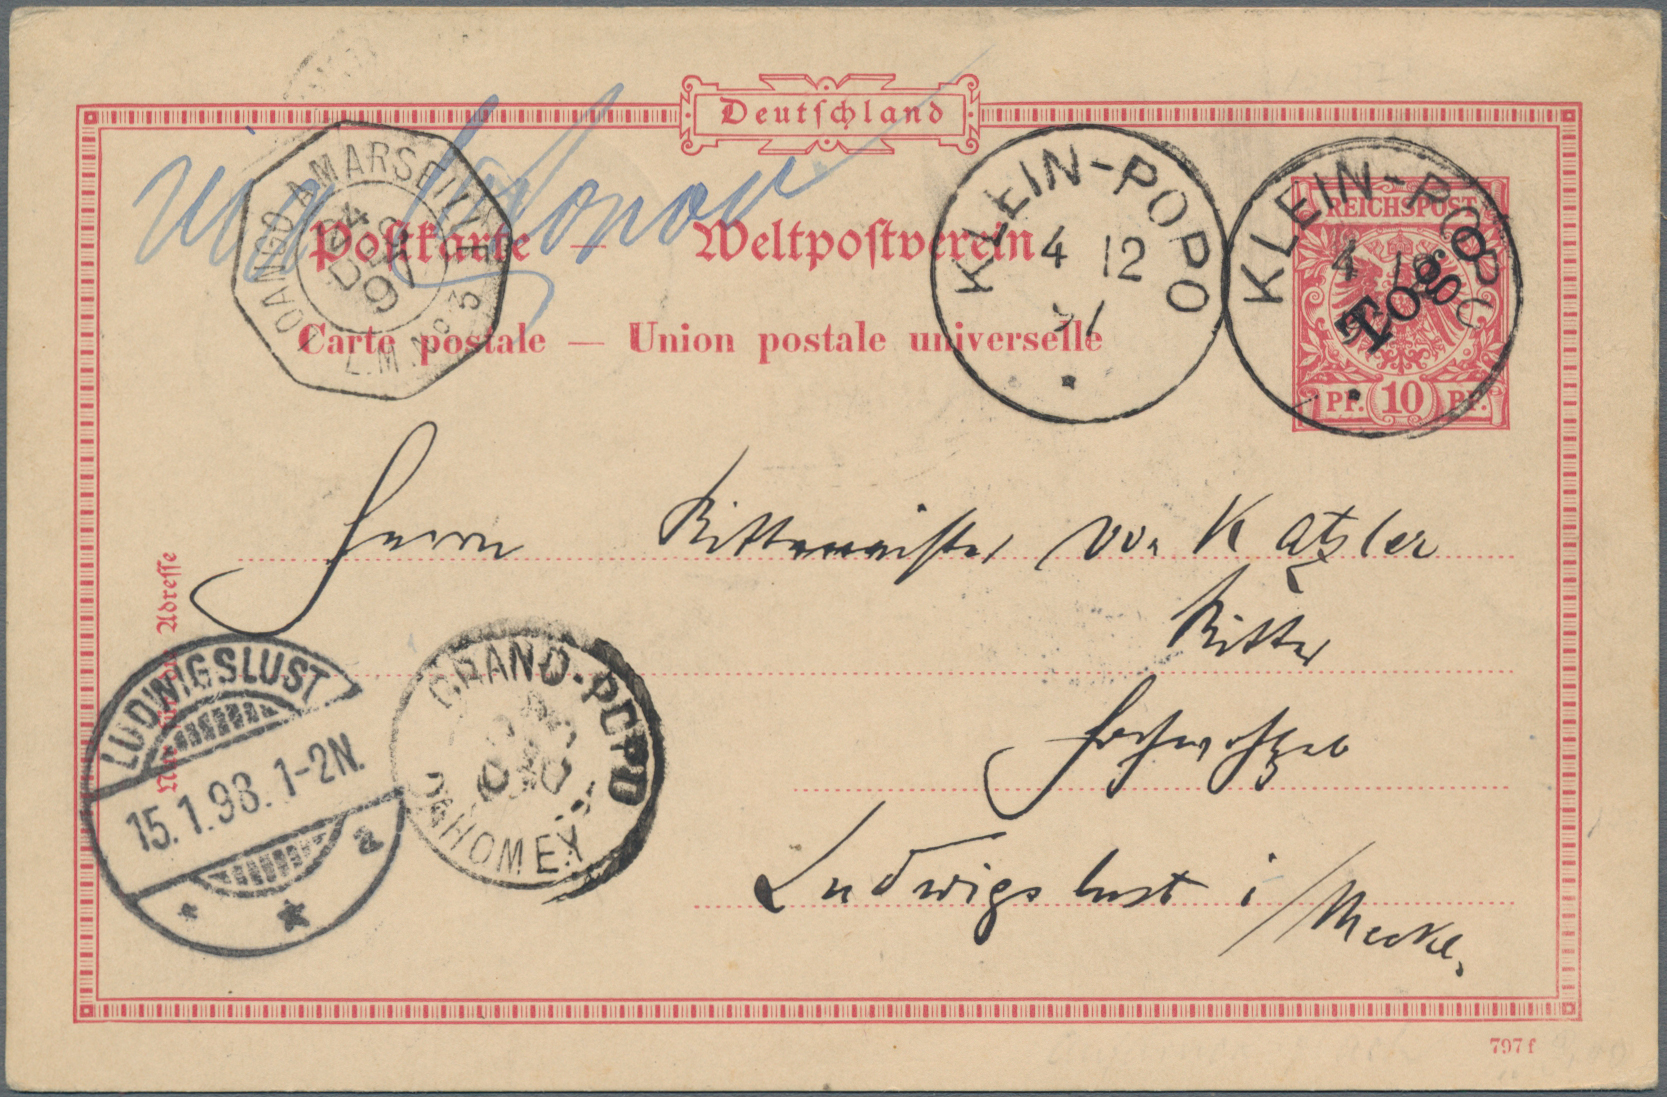 Deutschland
via
LOANGO A MARSEILLE
24
DEC
97
L.M. No 3
Postkarte — Weltpostverein
Carte postale — Union postale universelle
KLEIN-POPO
4 12
97
KLEIN-POPO
4 12
REICHSPOST
Togo
PF. 10 PF.
Herrn Rittmeister von Katzler
Ritter
Ludwigslust i/Meckl.
Adresse
LUDWIGSLUST
15.1.98. 1-2N.
a
GRAND-POPO
DAHOMEY
797 f